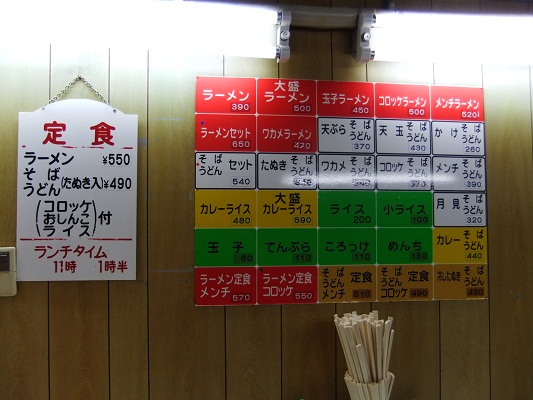 定食
ラーメン ¥550
そば
うどん (たぬき入) ¥490
(コロッケ
おしんこ
ライス) 付
ランチタイム
11時 1時半
ラーメン 390
大盛 ラーメン 500
玉子ラーメン 450
コロッケラーメン 500
メンチラーメン 520
ラーメンセット 650
ワカメラーメン 470
天ぷら そば うどん 370
天玉 そば うどん 430
かけ そば うどん 260
そば うどん セット 540
たぬき そば うどん
ワカメ そば うどん
コロッケ そば うどん 370
メンチ そば うどん 390
カレーライス 480
大盛 カレーライス 590
ライス 200
小ライス 100
月見 そば うどん 320
玉子 60
てんぷら 110
ころっけ 110
めんち 130
カレー そば うどん 440
ラーメン定食 メンチ 570
ラーメン定食 コロッケ 550
そば うどん 定食 メンチ 510
そば うどん 定食 コロッケ 490
そば うどん